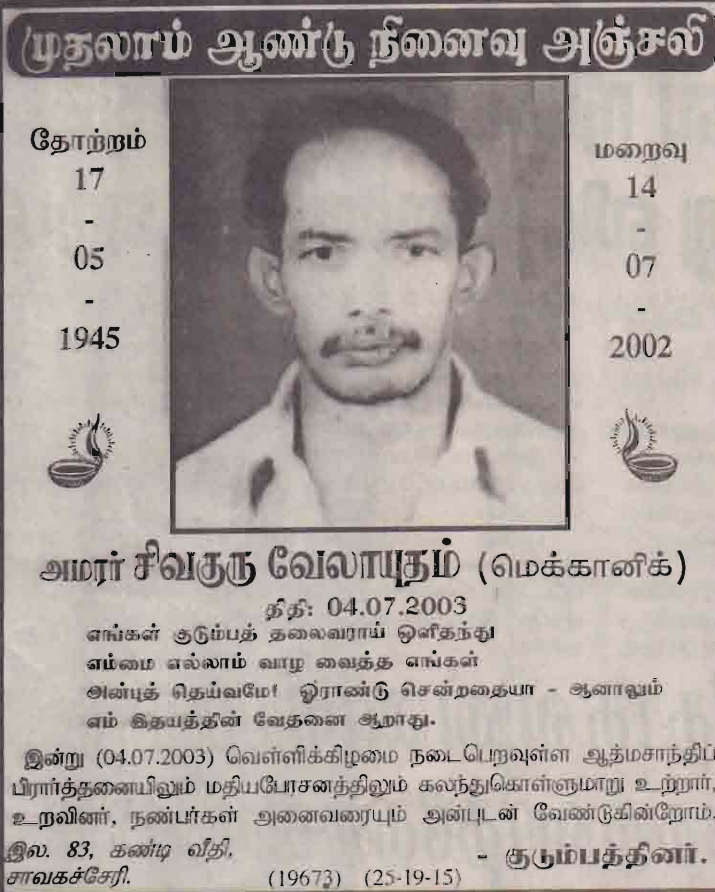 முதலாம் ஆண்டு நினைவு அஞ்சலி
தோற்றம்
17
-
05
-
1945
மறைவு
14
-
07
-
2002
அமரர் சிவகுரு வேலாயுதம் (மெக்கானிக்)
திதி: 04.07.2003
எங்கள் குடும்பத் தலைவராய் ஒளிதந்து
எம்மை எல்லாம் வாழ வைத்த எங்கள்
அன்புத் தெய்வமே! ஓராண்டு சென்றதையா - ஆனாலும்
எம் இதயத்தின் வேதனை ஆறாது.
இன்று (04.07.2003) வெள்ளிக்கிழமை நடைபெறவுள்ள ஆத்மசாந்திப்
பிரார்த்தனையிலும் மதியபோசனத்திலும் கலந்துகொள்ளுமாறு உற்றார்,
உறவினர், நண்பர்கள் அனைவரையும் அன்புடன் வேண்டுகின்றோம்.
இல. 83, கண்டி வீதி,
சாவகச்சேரி.
- குடும்பத்தினர்.
(19673) (25-19-15)